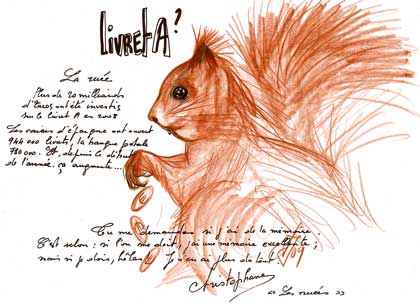 LIVRET A ?
La ruée
Plus de 20 milliards
d'Euros ont été investis
sur le Livret A en 2008
Les caisses d'épargne ont ouvert
944 000 livrets, la banque postale
780 000. Et, depuis le début
de l'année, ça augmente...
Tu me demandes si j'ai de la mémoire.
C'est selon : si l'on me doit, j'ai une mémoire excellente ;
mais si je dois, hélas ! Je n'en ai plus du tout.
09
Aristophane
"Les nuées"